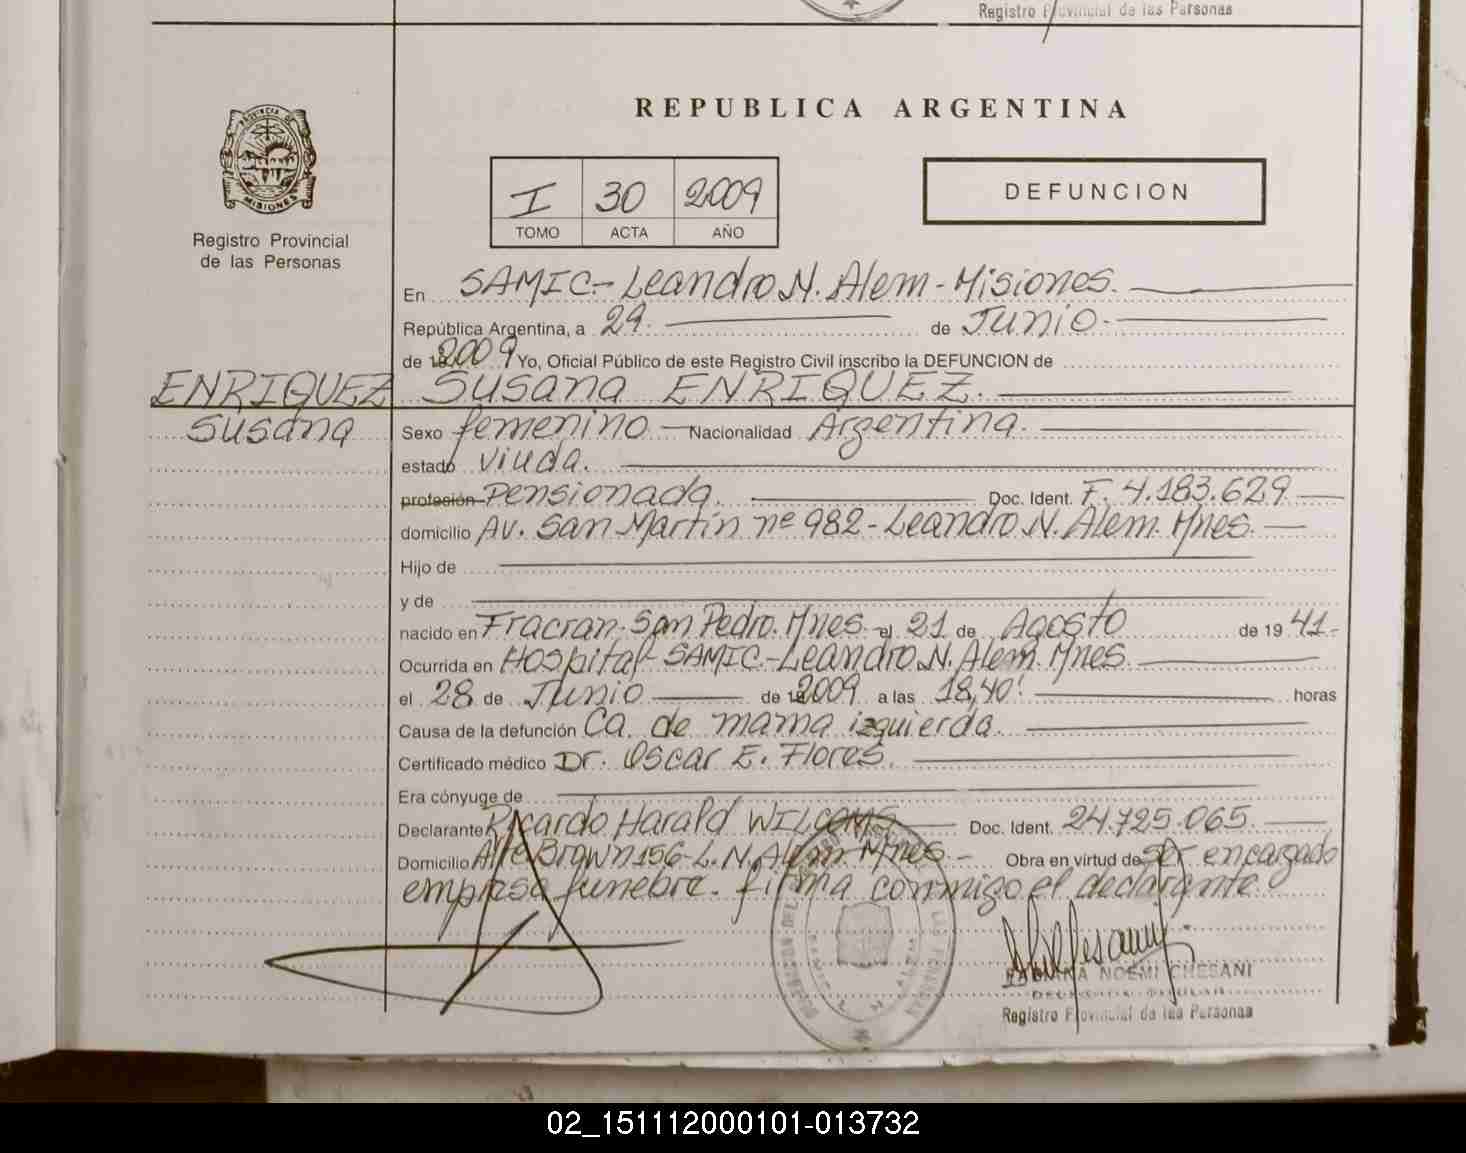 Registro Provincial de las Personas
REPUBLICA ARGENTINA
PROVINCIA DE
MISIONES
Registro Provincial
de las Personas
I 30 2009
TOMO ACTA AÑO
DEFUNCION
En SAMIC.- Leandro N. Alem - Misiones.
República Argentina, a 29. de Junio.
de 2009 Yo, Oficial Público de este Registro Civil inscribo la DEFUNCION de
ENRIQUEZ Susana ENRIQUEZ.
Susana Sexo femenino Nacionalidad Argentina.
estado viuda.
profesión pensionada. Doc. Ident. F. 4.183.629
domicilio Av. San Martín nº 982 - Leandro N. Alem. Mnes.
Hijo de
y de
nacido en Fracran. San Pedro. Mnes. el 21 de Agosto de 19 41.-
Ocurrida en Hospital SAMIC.- Leandro N. Alem. Mnes.
el 28 de Junio de 2009 a las 18,40' horas
Causa de la defunción Ca. de mama izquierda.
Certificado médico Dr. Oscar E. Flores.
Era cónyuge de
Declarante Ricardo Harald Doc. Ident. 24.725.065.
Domicilio Alte Brown 156 - L. N. Alem. Mnes - Obra en virtud de ser encargado
empresa funebre. firma conmigo el declarante.
NOEMI CHESANI
DELEGADA TITULAR
Registro Provincial de las Personas
02_151112000101-013732